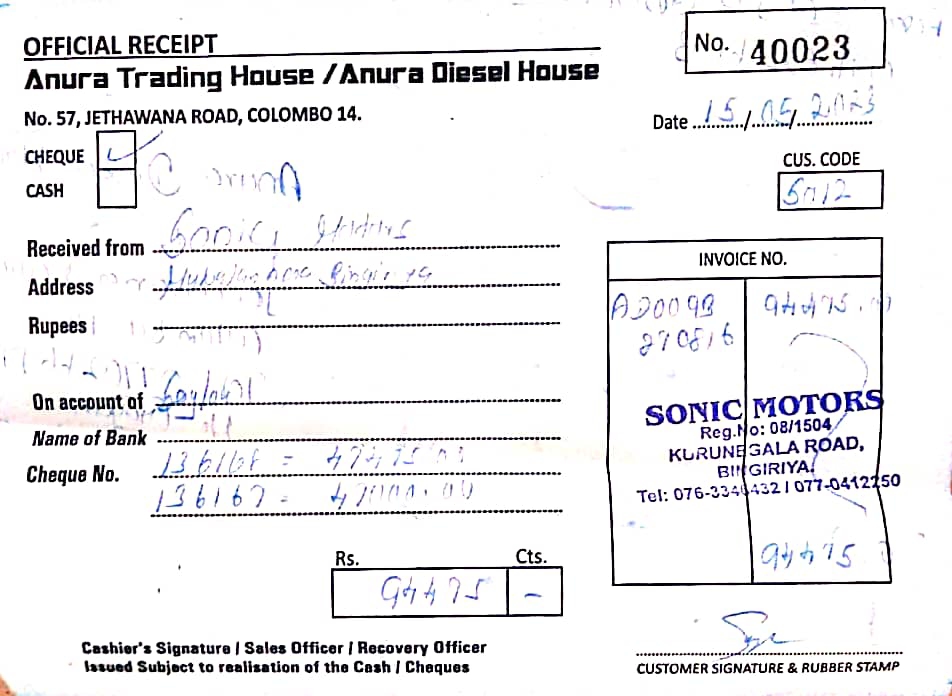 OFFICIAL RECEIPT
No. 40023
Anura Trading House /Anura Diesel House
No. 57, JETHAWANA ROAD, COLOMBO 14.
Date 15/05/2023
CHEQUE
CASH
CUS. CODE
5012
Received from Sonic
Address
Rupees
INVOICE NO.
AD0099 94475.
270816
On account of
Name of Bank
Cheque No. 136168 = 47475.00
136167 = 47000.00
SONIC MOTORS
Reg.No: 08/1504
KURUNEGALA ROAD,
BINGIRIYA.
Tel: 076-3346432 / 077-0412250
94475
Rs. Cts.
94475 -
Cashier's Signature / Sales Officer / Recovery Officer
Issued Subject to realisation of the Cash / Cheques
CUSTOMER SIGNATURE & RUBBER STAMP